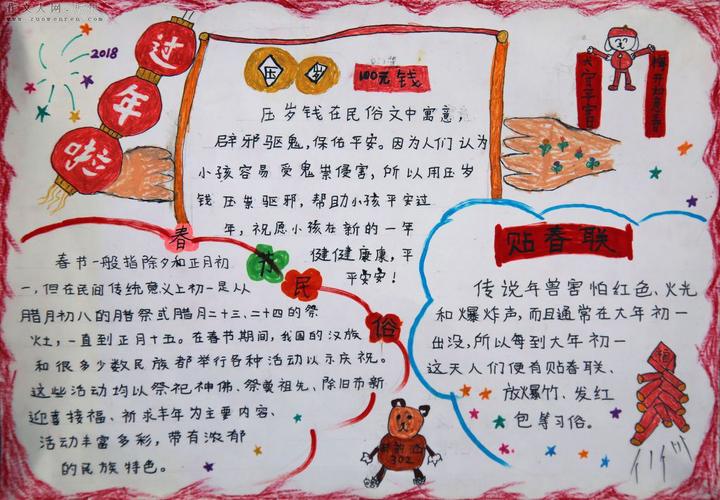 www.zuowenren.com
2018
过年啦
压岁
100元钱
压岁钱在民俗文中寓意，
辟邪驱鬼，保佑平安。因为人们认为
小孩容易受鬼祟侵害，所以用压岁
钱压祟驱邪，帮助小孩平安过
年，祝愿小孩在新的一年
健健康康，平
平安安！
春节民俗
春节一般指除夕和正月初
一，但在民间传统意义上初一是从
腊月初八的腊祭或腊月二十三、二十四的祭
灶，一直到正月十五。在春节期间，我国的汉族
和很多少数民族都举行各种活动以示庆祝。
这些活动均以祭祀神佛、祭奠祖先、除旧布新
迎喜接福、祈求丰年为主要内容、
活动丰富多彩，带有浓郁
的民族特色。
贴春联
传说年兽害怕红色、火光
和爆炸声，而且通常在大年初一
出没，所以每到大年初一
这天人们便有贴春联、
放爆竹、发红
包等习俗。
302